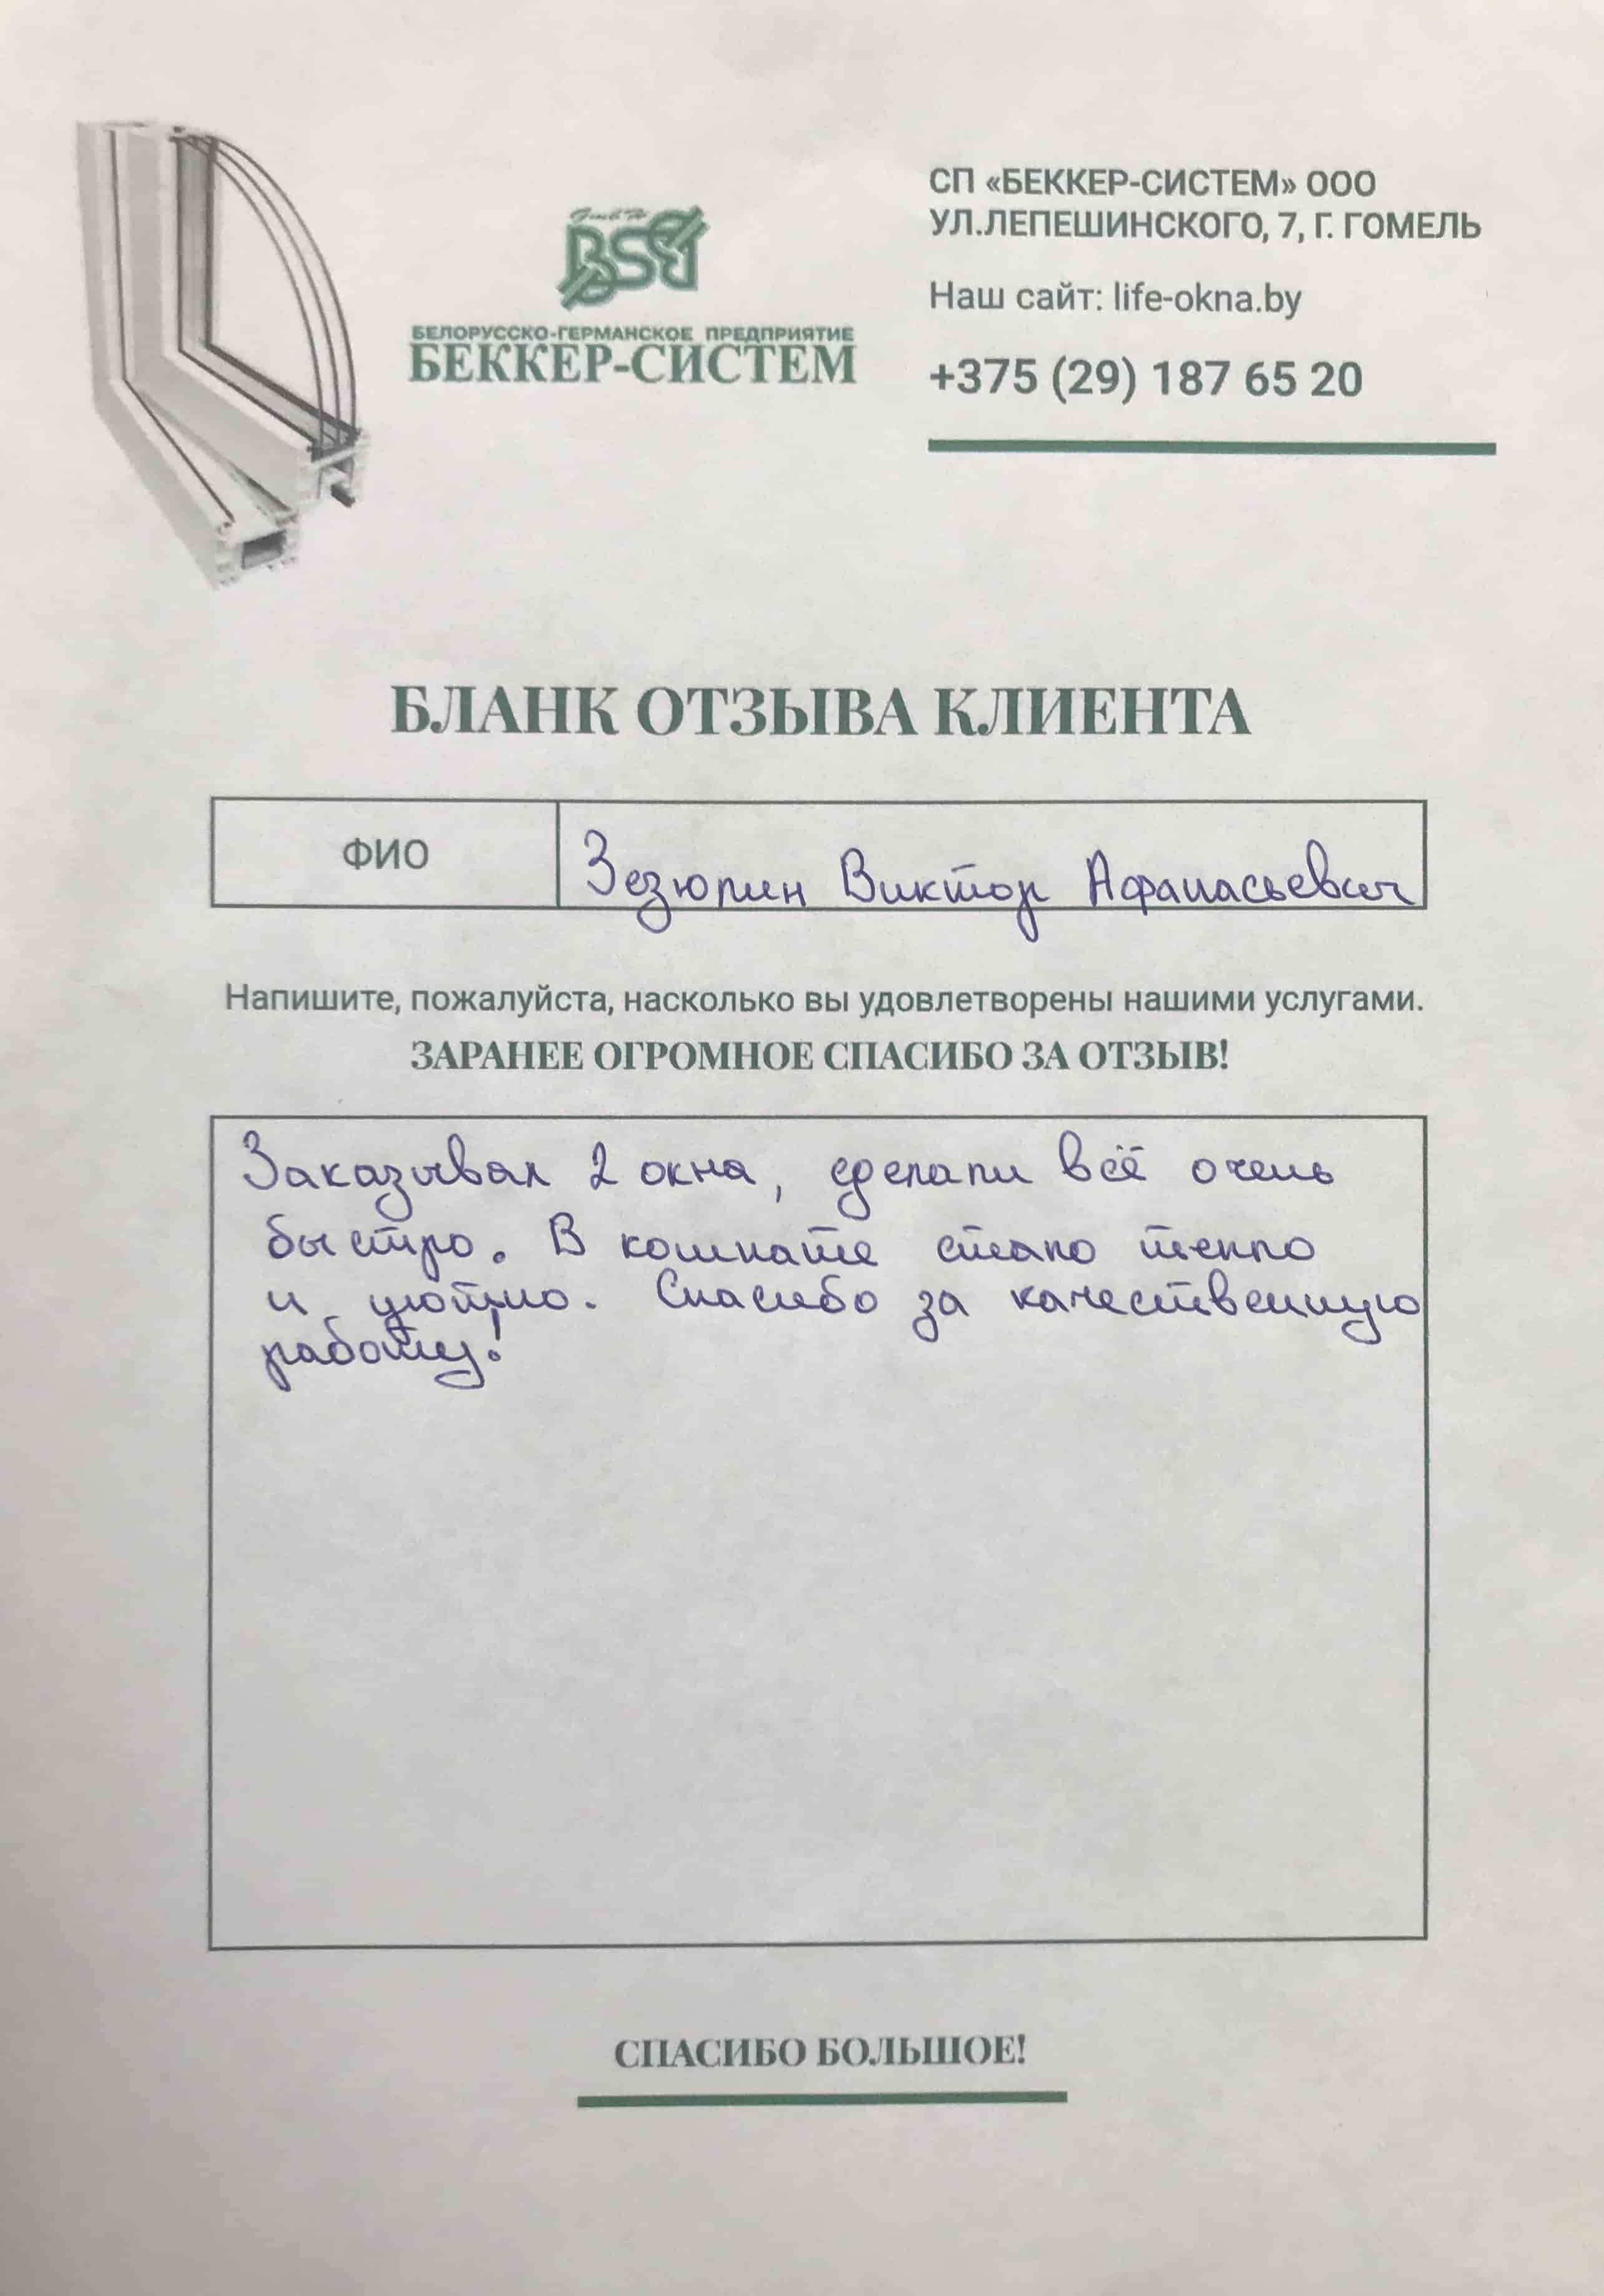 СП «БЕККЕР-СИСТЕМ» ООО
УЛ.ЛЕПЕШИНСКОГО, 7, Г. ГОМЕЛЬ
Наш сайт: life-okna.by
+375 (29) 187 65 20
BSB
БЕЛОРУССКО-ГЕРМАНСКОЕ ПРЕДПРИЯТИЕ
БЕККЕР-СИСТЕМ
БЛАНК ОТЗЫВА КЛИЕНТА
ФИО
Зезюлин Виктор Афанасьевич
Напишите, пожалуйста, насколько вы удовлетворены нашими услугами.
ЗАРАНЕЕ ОГРОМНОЕ СПАСИБО ЗА ОТЗЫВ!
Заказывал 2 окна, сделали всё очень
быстро. В комнате стало тепло
и уютно. Спасибо за качественную
работу!
СПАСИБО БОЛЬШОЕ!